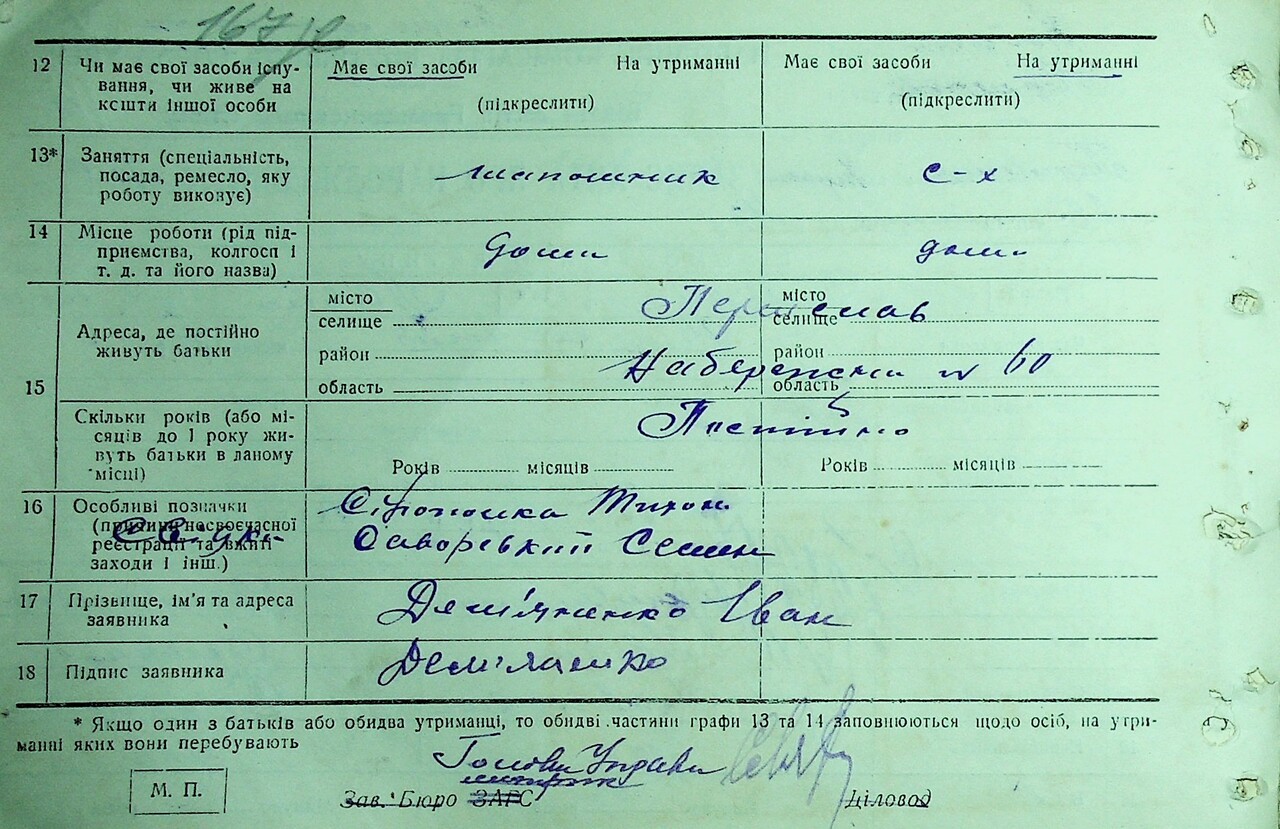 167
12 Чи має свої засоби існу- Має свої засоби На утриманні Має свої засоби На утриманні
вання, чи живе на
кошти іншої особи (підкреслити) (підкреслити)
13* Заняття (спеціальність,
посада, ремесло, яку шапошник с-х
роботу виконує)
14 Місце роботи (рід під-
приємства, колгосп і дома дома
т. д. та його назва)
15 Адреса, де постійно
живуть батьки
місто місто
селище Переяслав селище
район район
Набережна № 60
область область
Скільки років (або мі-
сяців до 1 року жи- Постійно
вуть батьки в даному
місці)
Років місяців Років місяців
16 Особливі позначки Тихон
(причини несвоєчасної
Свідки
реєстрації та вжиті Семен
заходи і інш.)
17 Прізвище, ім'я та адреса Дем'яненко Іван
заявника
18 Підпис заявника Дем'яненко
* Якщо один з батьків або обидва утриманці, то обидві частини графи 13 та 14 заповнюються щодо осіб, на утри-
манні яких вони перебувають
Голова Управи
М. П.
Зав. Бюро ЗАГС Діловод